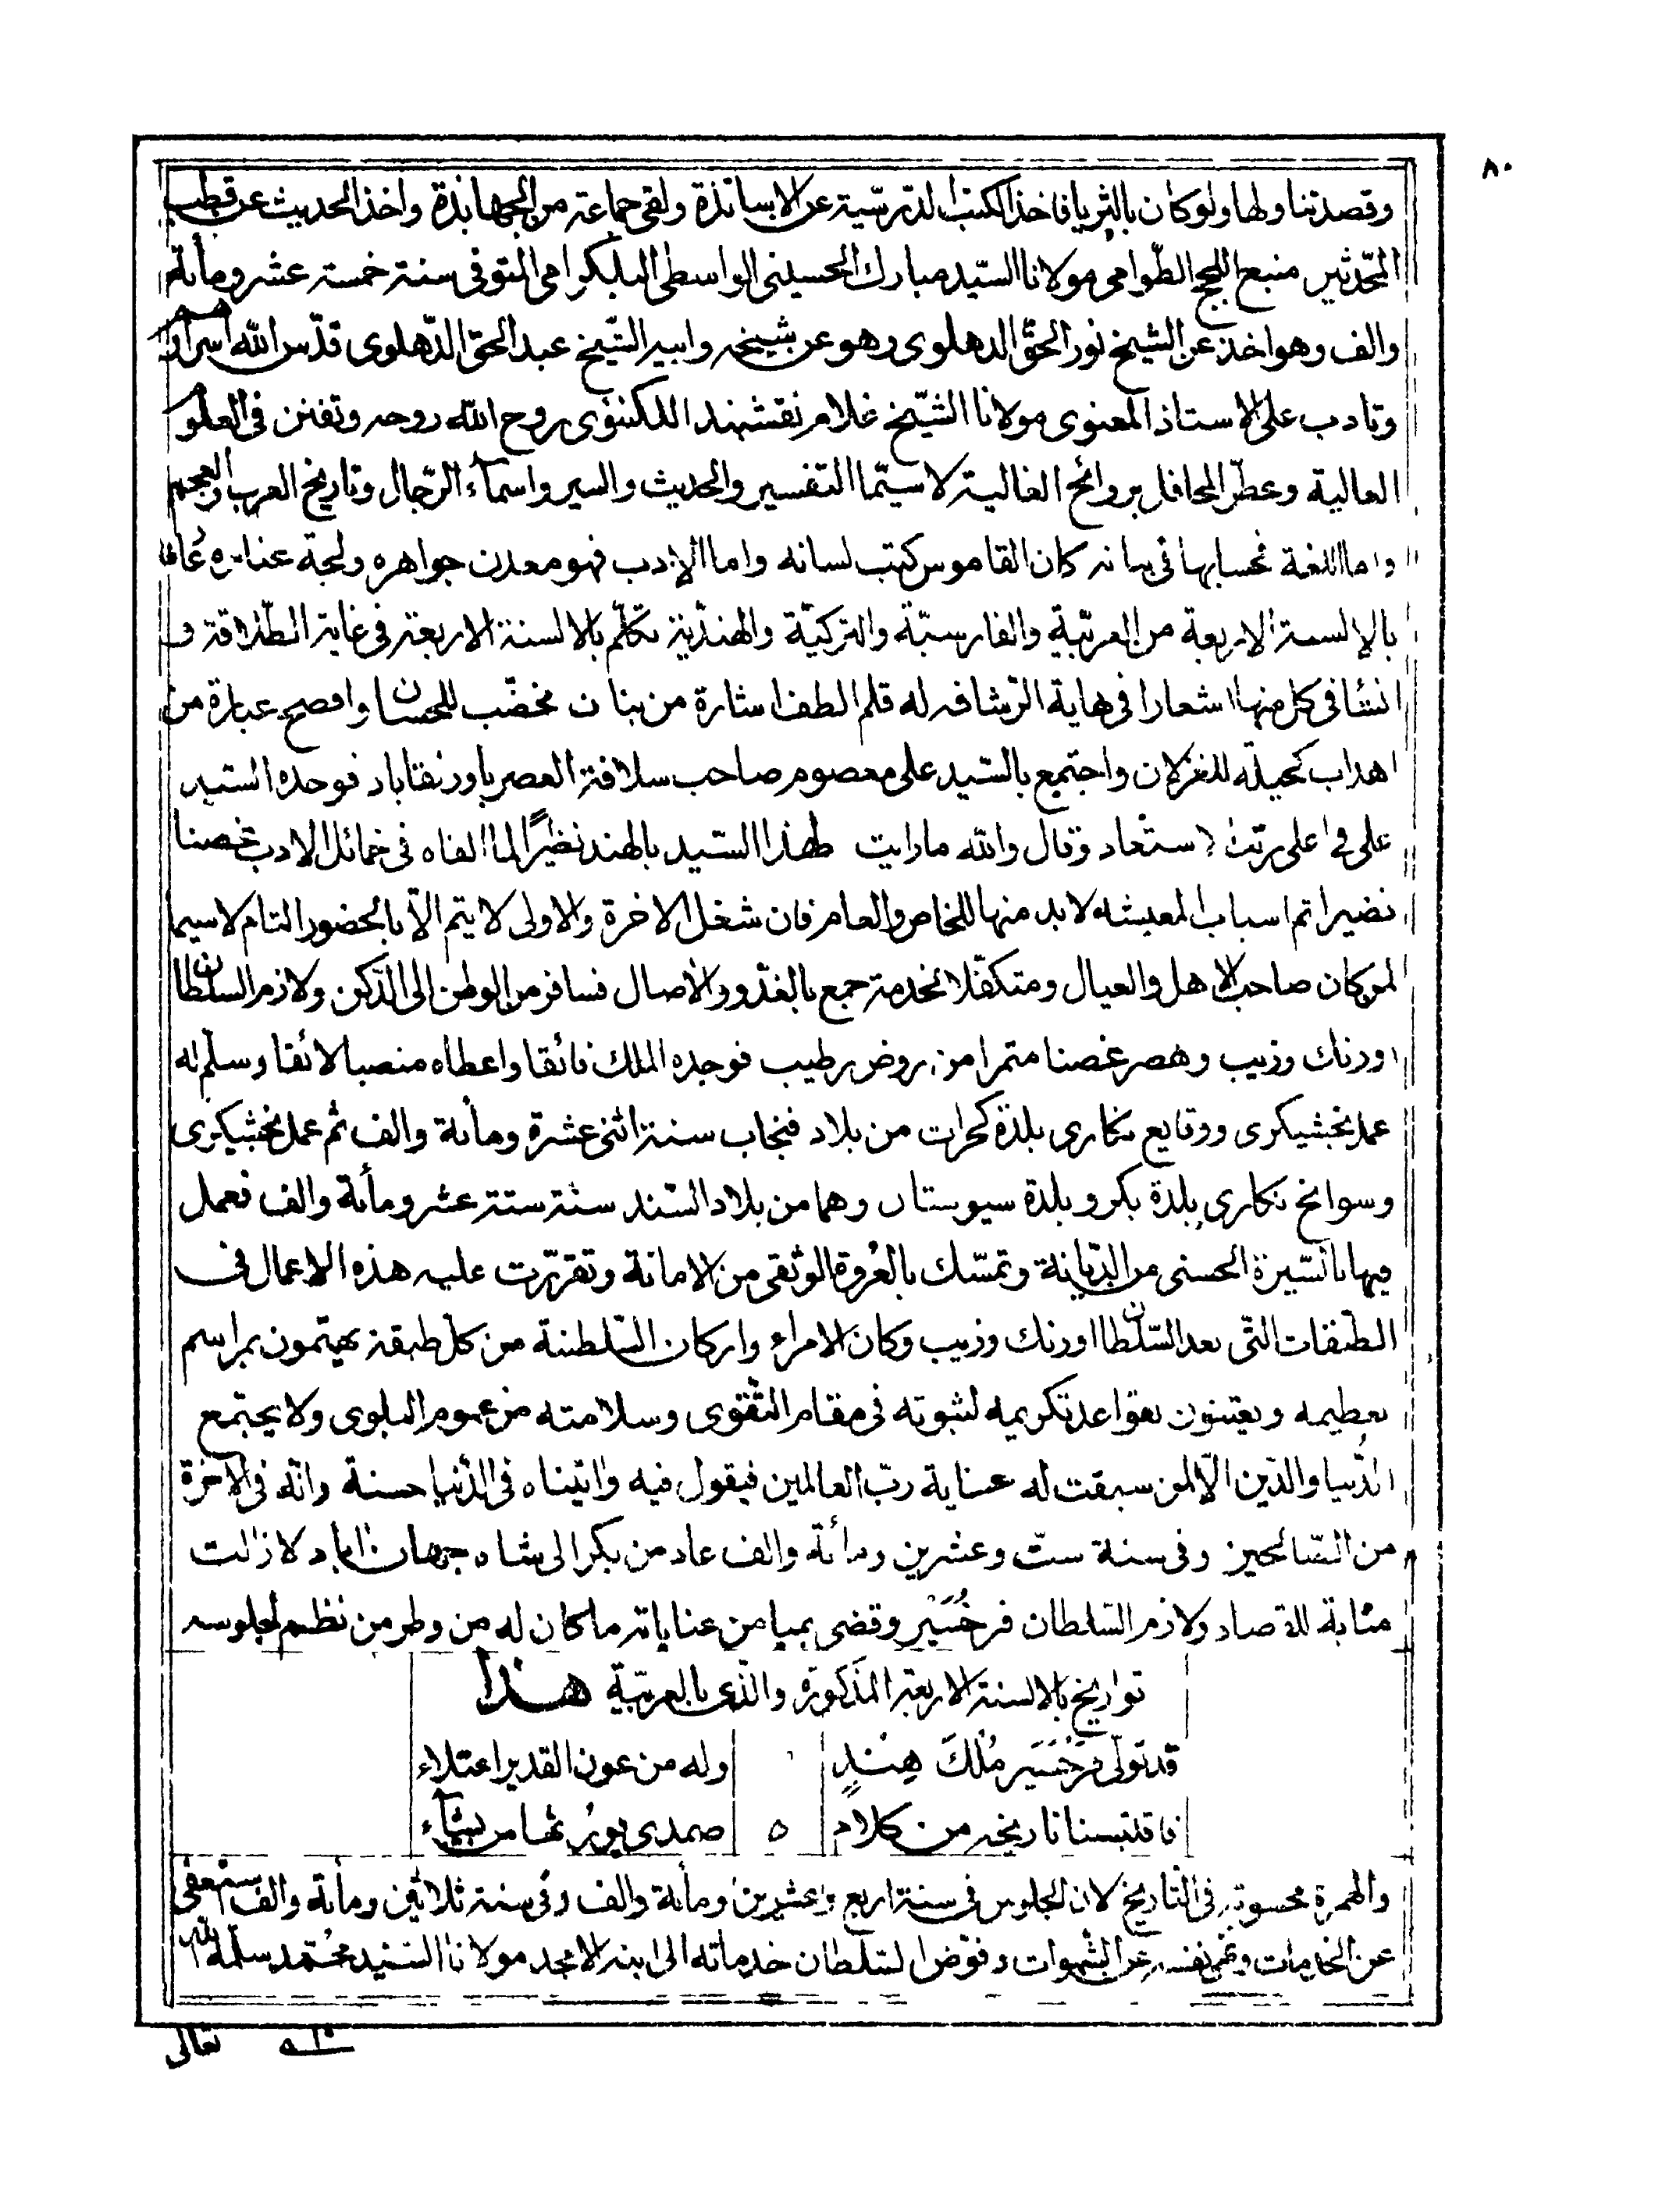 ٨٠
وقصد تناولها ولو كان بالثريا فاخذ الكتب الدرسّية عن الاساتذة ولقى جماعة من الجهابذة واخذ الحديث عن قطب
المحّدثين منبع اللجج الطّوامى مولانا السّيد مبارك الحسينى الواسطى البلكرامى المتوفى سنة خمسة عشر ومأىة
والف وهو اخذ عن الشيخ نور الحقّ الدهلوى وهو عن شيخه وابيه الشّيخ عبد الحق الدّهلوى قدّس اللّه اسرارهم
وتادب على الاستاذ المعنوى مولانا الشّيخ غلام نقشبند اللكنوى روح اللّه روحه وتفنن فى العلوم
العالية وعطّر المحافل بروائح الغالية لا سيّما التفسير والحديث والسير واسمآء الرّجال وتاريخ العرب والعجم
واما اللغة فحسابها فى بنانه كان القاموس كتب لسانه واما الادب فهو معدن جواهره ولجة عنابره
بالالسنة الاربعة من العربّية والفارسيّة والتركيّة والهنديّة تكلّم بالالسنة الاربعة فى غاية الطّلاقة و
انشا فى كل منها اشعارا فى نهاية الرّشاقه له قلم الطف اشارة من بنان مخضّب للحسان وافصح عبارة من
اهداب كحيلة للغزلان واجتمع بالسّيد على معصوم صاحب سلافة العصر باورنقاباد فوجده السّيد
على فى اعلى رتبة الاستعاد وقال واللّه مارايت لهذا السّيد بالهند نظيرًا لما الفاه فى خمائل الادب غصنا
نضيرا تم اسباب المعيشه لا بد منها للخاص والعام فان شغل الاخرة والاولى لا يتم الّا بالحضور التام لا سيما
لمن كان صاحب الاهل والعيال ومتكفّلا لخدمة جمع بالغدّو والاصال فسافر من الوطن الى الدّكن ولازم السلطان
اورنك وزيب وهصر غصنا مثمرا من روض رطيب فوجده الملك فائقا واعطاه منصبا لائقا وسلّم له
عمل بخشيكرى ووقايع نكارى بلدة كجرات من بلاد فنجاب سنة اثنى عشرة ومأىة والف ثم عمل بخشيكرى
وسوانخ نكارى بلدة بكر وبلدة سيوستان وهما من بلاد السّند سنة ستة عشر ومأىة والف فعمل
فيها بالسّيرة الحسنى من الدّيانة وتمسّك بالعُروة الوثقى من الامانة وتقرّرت عليه هذه الاعمال فى
الطبقات التّى بعد السّلطان اورنك وزيب وكان الامراء واركان السّلطنة من كل طبقة يهتمون بمراسم
تعظيمه ويعتنون بقواعد تكريمه لثبوته فى مقام التّقوى وسلامته من عموم البلوى ولا يجتمع
الدُّنيا والدّين الّا لمن سبقت له عناية ربّ العالمين فيقول فيه واتيناه فى الدّنيا حسنة وانّه فى الآخرة
من الصّالحين وفى سنة ستّ وعشرين ومأئة والف عاد من بكر الى شاه جهان اباد لا زالت
مثابة للقصاد ولازم السّلطان فرخسَير وقضى بميامن عناياته ما كان له من وطر من نظم لجلوسه
تواريخ بالالسنة الاربعة المذكورة والّذى بالعربّية هذا
قد تولّى فرخسَير مُلكَ هِندٍ وله من عون القدير اعتلاء
فاقتبسنا تاريخه من كلام ٥ صمدى يورثها من يشآء
والهمزة محسوبة فى التّاريخ لان الجلوس فى سنة اربع وعشرين ومأىة والف وفى سنة ثلاثين ومأىة والف استعفى
عن الخدمات ونفسه عن الشّهوات وفوّض السّلطان خدماته الى ابنه الامجد مولانا السّيد محمّد سلّمه اللّه
تعالى